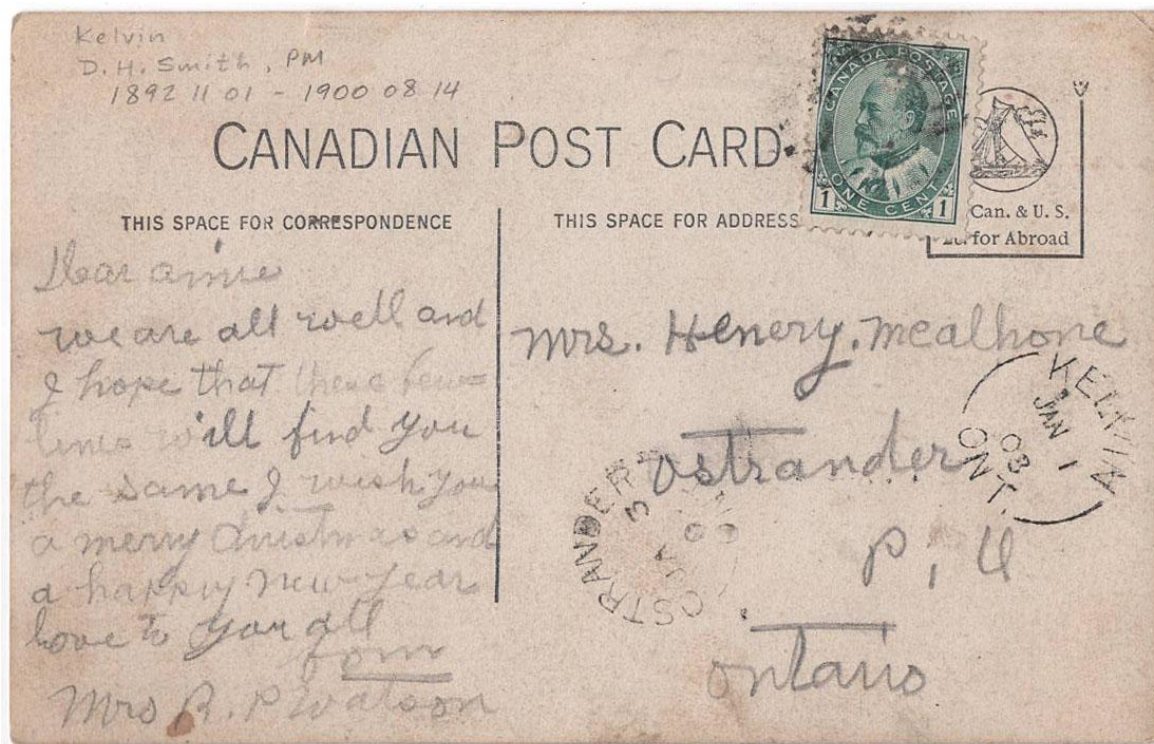 Kelvin
D.H. Smith, PM
1892 11 01 - 1900 08 14
CANADIAN POST CARD
CANADA POSTAGE
ONE CENT
1 1
Can. & U. S.
for Abroad
THIS SPACE FOR CORRESPONDENCE
THIS SPACE FOR ADDRESS
Dear
we are all well and
I hope that these few
lines will find you
the same I wish you
a merry Christmas and
a happy new year
love to you all
from
Mrs R. P Watson
Mrs. Henery. Mcalhone
Ostrander
P, O
ontario
KELVIN
JAN 1
ONT.
OSTRANDER
JA